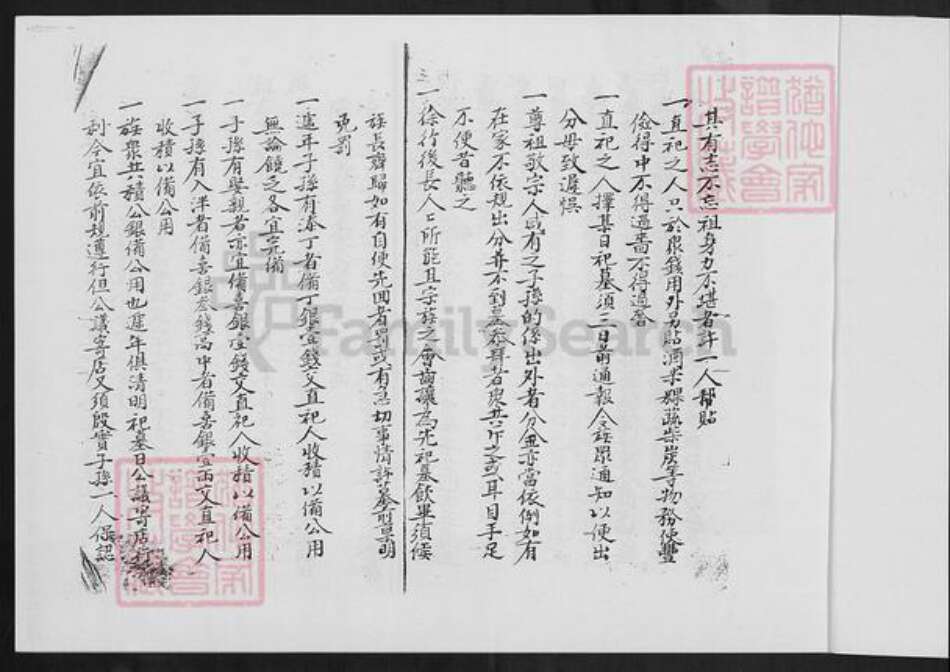 其有志不忘祖身力不堪者許一人幫貼
一直祀之人只於眾錢用外另貼酒米粿蔬柴炭等物務使豐
儉得中不得過嗇不得過奢
一直祀之人擇其日祀墓須三日前通報合族眾通知以便出
分毋致遲悞
一尊祖敬宗人咸有之子孫的係出外者分金亦當依例如有
在家不依規出分并不到墓參拜者眾共斥之或耳目手足
不便者聽之
一徐行後長人所能且宗族之會論讓為先祀墓飲畢須候
族長辭歸如有自便先回者罰或有急切事情許慕堅明
免罰
一遞年子孫有添丁者備丁銀壹錢交直祀人收積以備公用
無論饒乏各宜完備
一子孫有舉親者亦宜備喜銀壹錢交直祀人收積以備公用
一子孫有入泮者備喜銀叁錢高中者備喜銀壹兩交直祀人
收積以備公用
一族眾共積公銀備公用也遞年俱清明祀墓日公議寄店行
利今宜依前規遵行但公議寄店又須殷實子孫一人保認
三
猶他家
譜學會
收藏
猶他家
譜學會
收藏
FamilySearch